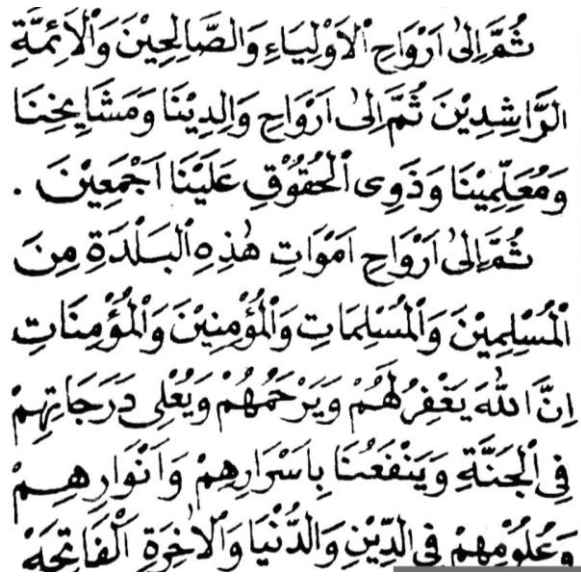 ثُمَّ اِلىٰ اَرْوَاحِ الْاَوْلِيَاءِ وَالصَّالِحِيْنَ وَالْاَئِمَّةِ
الرَّاشِدِيْنَ ثُمَّ اِلىٰ اَرْوَاحِ وَالِدِيْنَا وَمَشَايِخِنَا
وَمُعَلِّمِيْنَا وَذَوِى الْحُقُوْقِ عَلَيْنَا اَجْمَعِيْنَ .
ثُمَّ اِلىٰ اَرْوَاحِ اَمْوَاتِ هٰذِهِ الْبَلْدَةِ مِنَ
الْمُسْلِمِيْنَ وَالْمُسْلِمَاتِ وَالْمُؤْمِنِيْنَ وَالْمُؤْمِنَاتِ
اِنَّ اللهَ يَغْفِرُ لَهُمْ وَيَرْحَمُهُمْ وَيُعْلِى دَرَجَاتِهِمْ
فِى الْجَنَّةِ وَيَنْفَعُنَا بِاَسْرَارِهِمْ وَاَنْوَارِهِمْ
وَعُلُوْمِهِمْ فِى الدِّيْنِ وَالدُّنْيَا وَالْاٰخِرَةِ اَلْفَاتِحَهْ